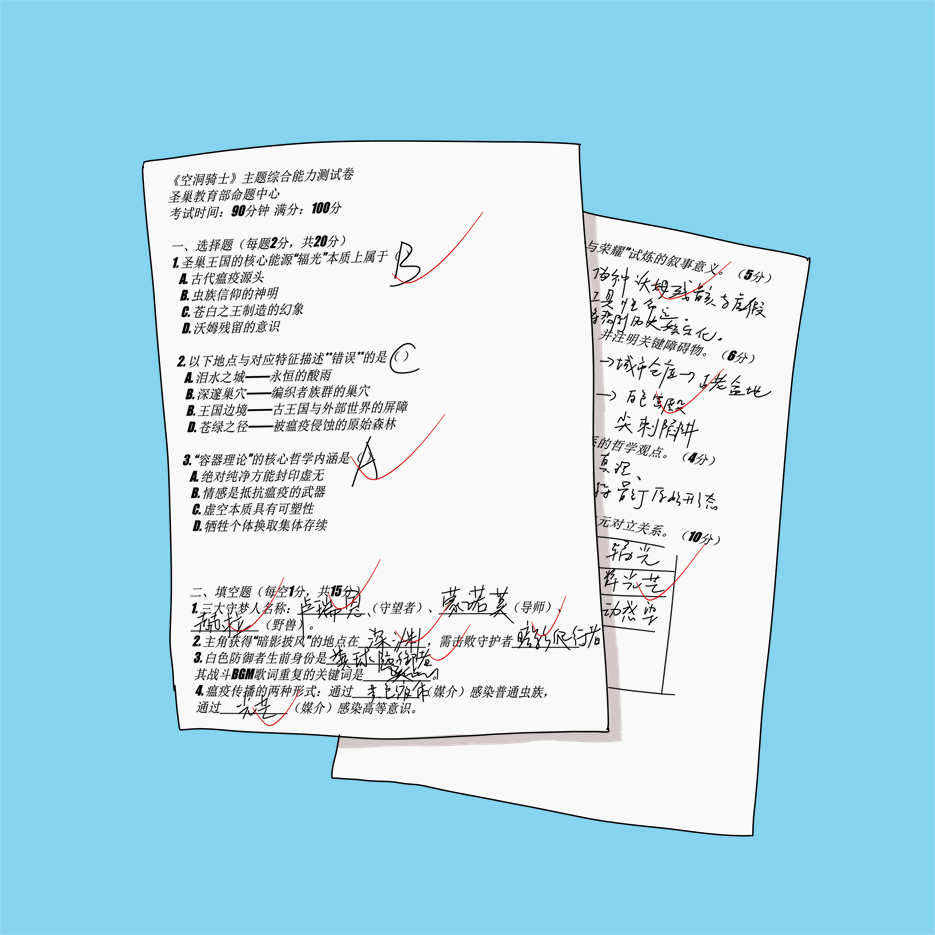 《空洞骑士》主题综合能力测试卷
圣巢教育部命题中心
考试时间：90分钟 满分：100分
一、选择题（每题2分，共20分）
1.圣巢王国的核心能源“辐光”本质上属于 B
A.古代瘟疫源头
B.虫族信仰的神明
C.苍白之王制造的幻象
D.沃姆残留的意识
2.以下地点与对应特征描述**错误**的是（）C
A.泪水之城——永恒的酸雨
B.深邃巢穴——编织者族群的巢穴
B.王国边境——古王国与外部世界的屏障
D.苍绿之径——被瘟疫侵蚀的原始森林
3.“容器理论”的核心哲学内涵是 A
A.绝对纯净方能封印虚无
B.情感是抵抗瘟疫的武器
C.虚空本质具有可塑性
D.牺牲个体换取集体存续
二、填空题（每空1分，共15分）
1.三大守梦人名称：卢瑞恩（守望者）、蒙诺莫（导师）、
赫拉（野兽）。
2.主角获得“暗影披风”的地点在深渊，需击败守护者暗影爬行者
3.白色防御者生前身份是粪球防御者
其战斗BGM歌词重复的关键词是
4.瘟疫传播的两种形式：通过（媒介）感染普通虫族，
通过光芒（媒介）感染高等意识。
与荣耀”试炼的叙事意义。（5分）
沃姆残骸与虚假
工具性命运
并注明关键障碍物。（6分）
→城市仓库→
→白色宫殿
尖刺陷阱
系的哲学观点。（4分）
真理、
形态
元对立关系。（10分）
辐光
光芒